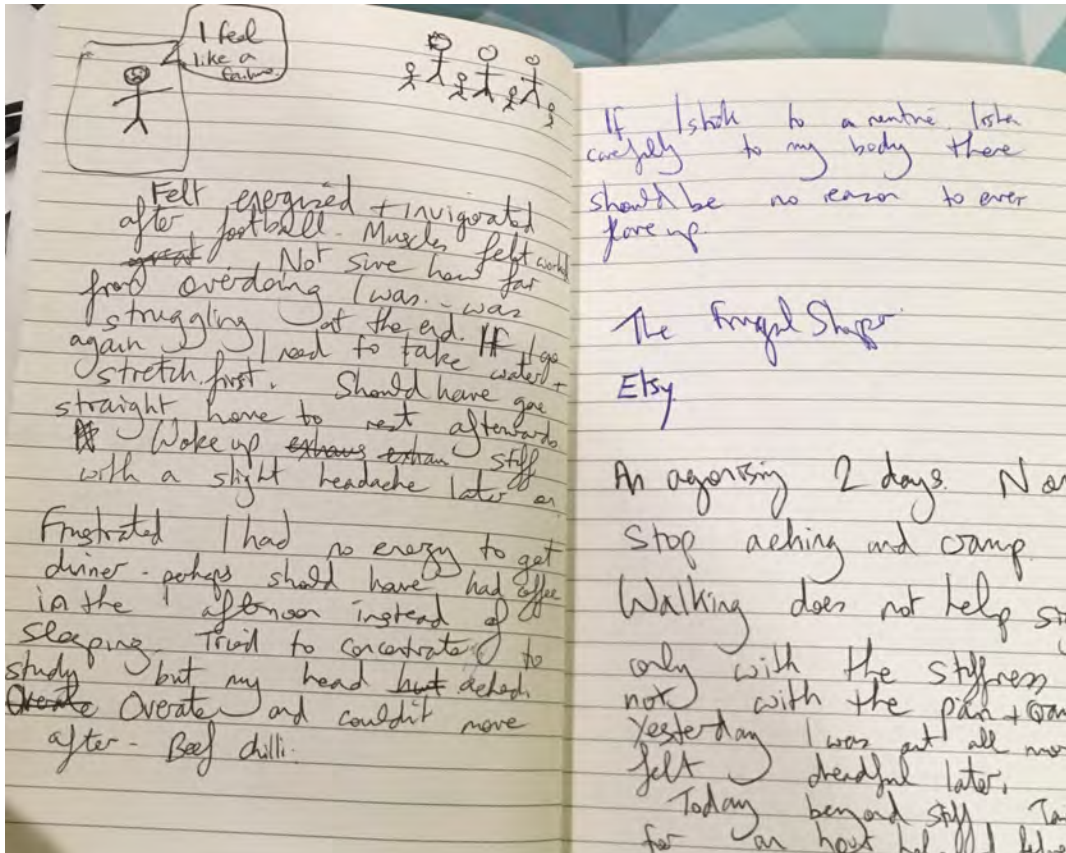 I feel
like a
failure.
Felt energized + invigorated
after football. Muscles felt worked
great Not sure how far
from overdoing I was - was
struggling at the end. If I go
again I need to take water +
stretch first. Should have gone
straight home to rest afterwards
Woke up exhaus exhau stiff
with a slight headache later on
Frustrated I had no energy to get
dinner - perhaps should have had coffee
in the afternoon instead of
sleeping. Tried to concentrate to
study but my head hurt ached.
Overate Overate and couldn't move
after - Beef chilli.
If I stick to a routine listen
carefully to my body there
should be no reason to ever
flare up.
The Frugal
Etsy.
An agonising 2 days. Non
stop aching and cramp.
Walking does not help
only with the stiffness
not with the pain +
Yesterday I was out all
felt dreadful later.
Today beyond stiff
for an hour